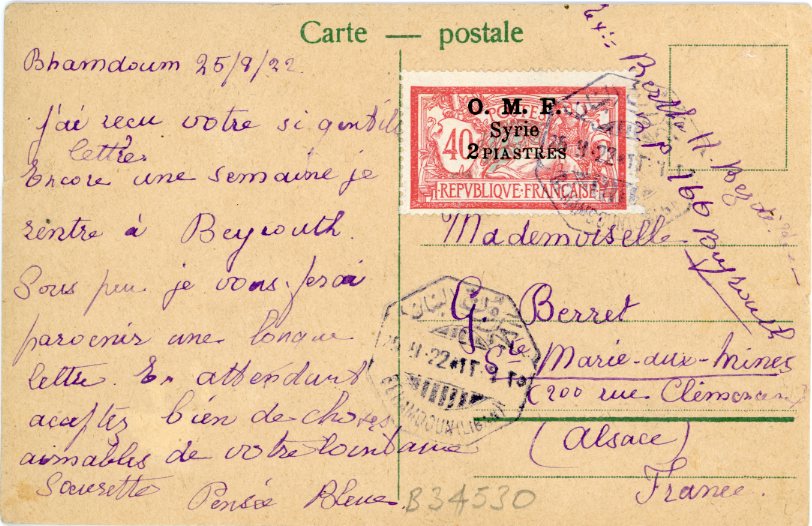 Carte — postale
Bhamdoum 25/9/22
j'ai reçu votre si gentille
lettre
Encore une semaine je
rentre à Beyrouth.
Sous peu je vous ferai
parvenir une longue
lettre. En attendant
acceptez bien de choses
aimables de votre lointaine
Sœurette
Pensée Bleue.
O. M. F.
Syrie
2 PIASTRES
40
REPVBLIQUE FRANÇAISE
Berthe H
B P 166 Beyrouth
Mademoiselle
G. Berret
Ste Marie-aux-Mines
(200 rue Clémenceau)
(Alsace)
France.
B34530